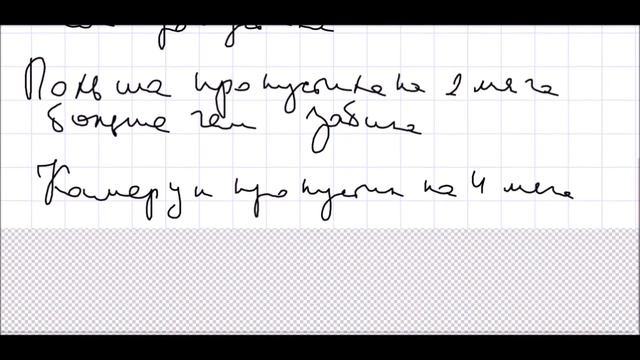 Польша пропустила на 2 мяча
больше чем забила
Камерун пропустил на 4 мяча